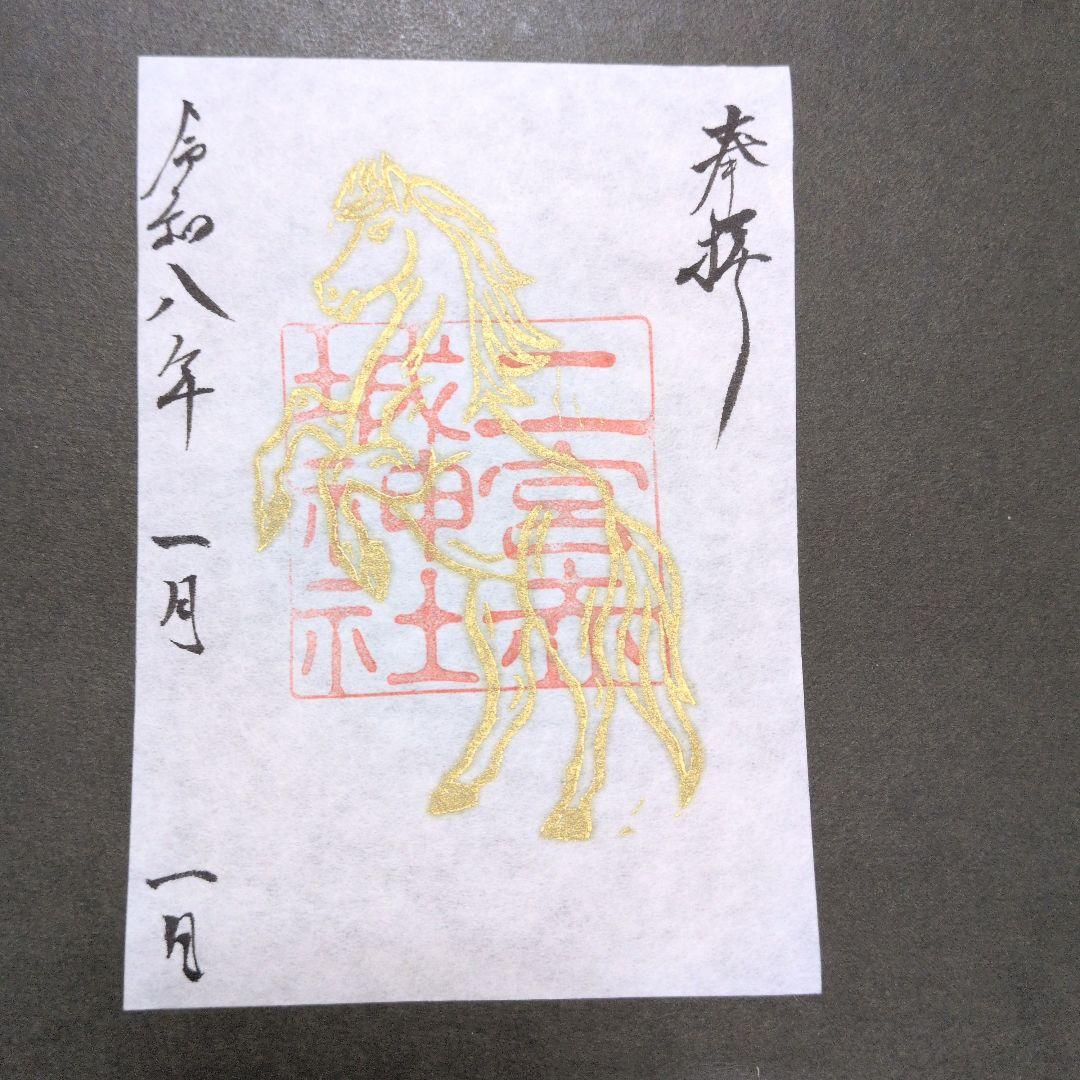 奉拝
二宮赤
城神社
令和八年 一月 一日